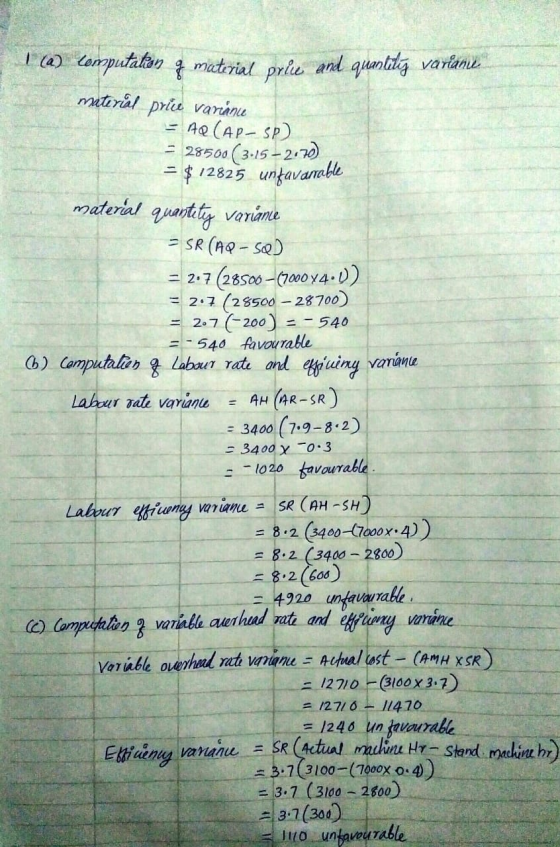 1 (a) Computation of material price and quantity variance
material price variance
= AQ(AP-SP)
= 28500(3.15-2.70)
= $ 12825 unfavarrable
material quantity variance
= SR(AQ-SQ)
= 2.7(28500-(7000x4.1))
= 2.7(28500-28700)
= 2.7(-200) = -540
= -540 favourable
(b) Computation of Labour rate and efficiency variance
Labour rate variance = AH(AR-SR)
= 3400(7.9-8.2)
= 3400 x -0.3
= -1020 favourable.
Labour efficiency variance = SR(AH-SH)
= 8.2(3400-(7000x.4))
= 8.2(3400-2800)
= 8.2(600)
= 4920 unfavourable.
(c) Computation of variable overhead rate and efficiency variance
Variable overhead rate variance = Actual cost - (AMH x SR)
= 12710 - (3100x3.7)
= 12710 - 11470
= 1240 unfavourable
Efficiency variance = SR(Actual machine Hr - Stand. machine hr)
= 3.7(3100-(7000x0.4))
= 3.7 (3100-2800)
= 3.7(300)
= 1110 unfavourable